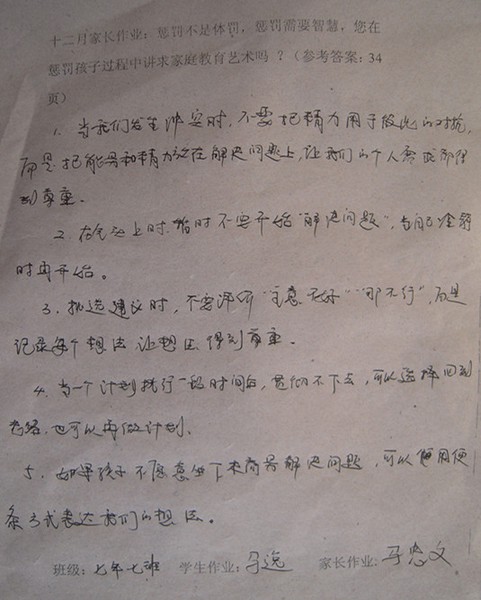 十二月家长作业：惩罚不是体罚，惩罚需要智慧，您在
惩罚孩子过程中讲求家庭教育艺术吗？（参考答案：34
页）
1. 当我们发生冲突时，不要把精力用于彼此的对抗，
而是把能量和精力放在解决问题上，让我们的个人需求都得
到尊重。
2. 在气头上时暂时不要开始“解决问题”，当自己冷静
时再开始。
3. 挑选建议时，不要评价“主意不好”“那不行”，而是
记录每个想法，让想法得到尊重。
4. 当一个计划执行一段时间后，坚持不下去，可以选择回到
老路，也可以再做计划。
5. 如果孩子不愿意坐下来商量解决问题，可以使用便
条方式表达我们的想法。
班级：七年七班 学生作业：马逸 家长作业：马忠文